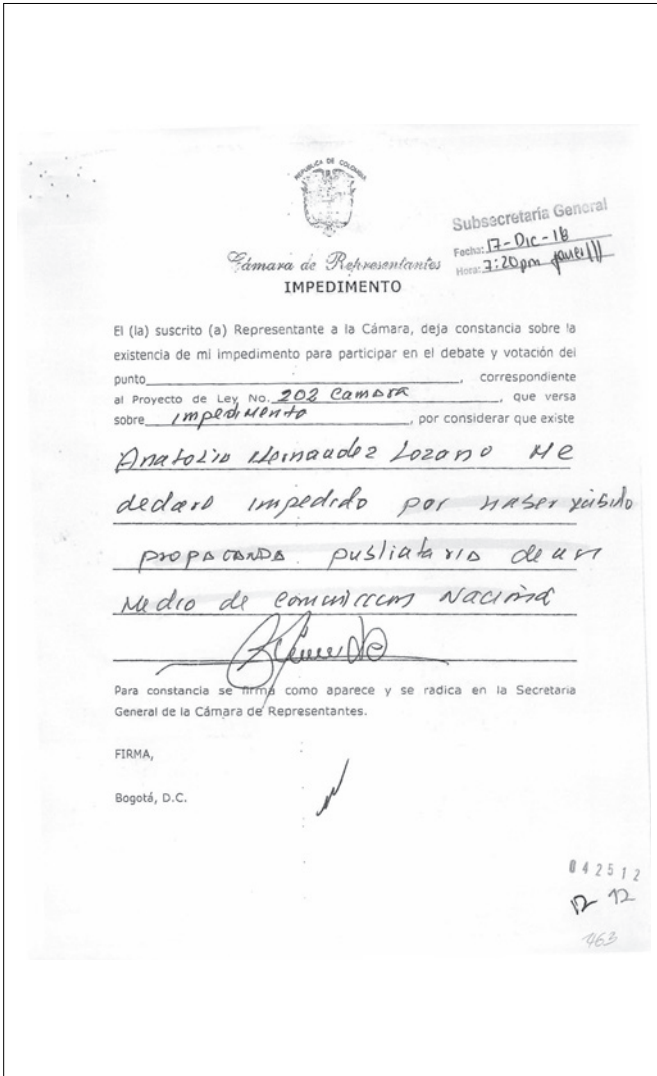 REPUBLICA DE COLOMBIA
Subsecretaría General
Fecha: 17-Dic-18
Hora: 7:20pm
Cámara de Representantes
IMPEDIMENTO
El (la) suscrito (a) Representante a la Cámara, deja constancia sobre la
existencia de mi impedimento para participar en el debate y votación del
punto__________, correspondiente
al Proyecto de Ley No. 202 camara, que versa
sobre impedimento, por considerar que existe
Anatolio Hernandez Lozano Me
declaro impedido por haber
propaganda de un
Medio de Nacional
Para constancia se firma como aparece y se radica en la Secretaria
General de la Cámara de Representantes.
FIRMA,
Bogotá, D.C.
042512
12
463